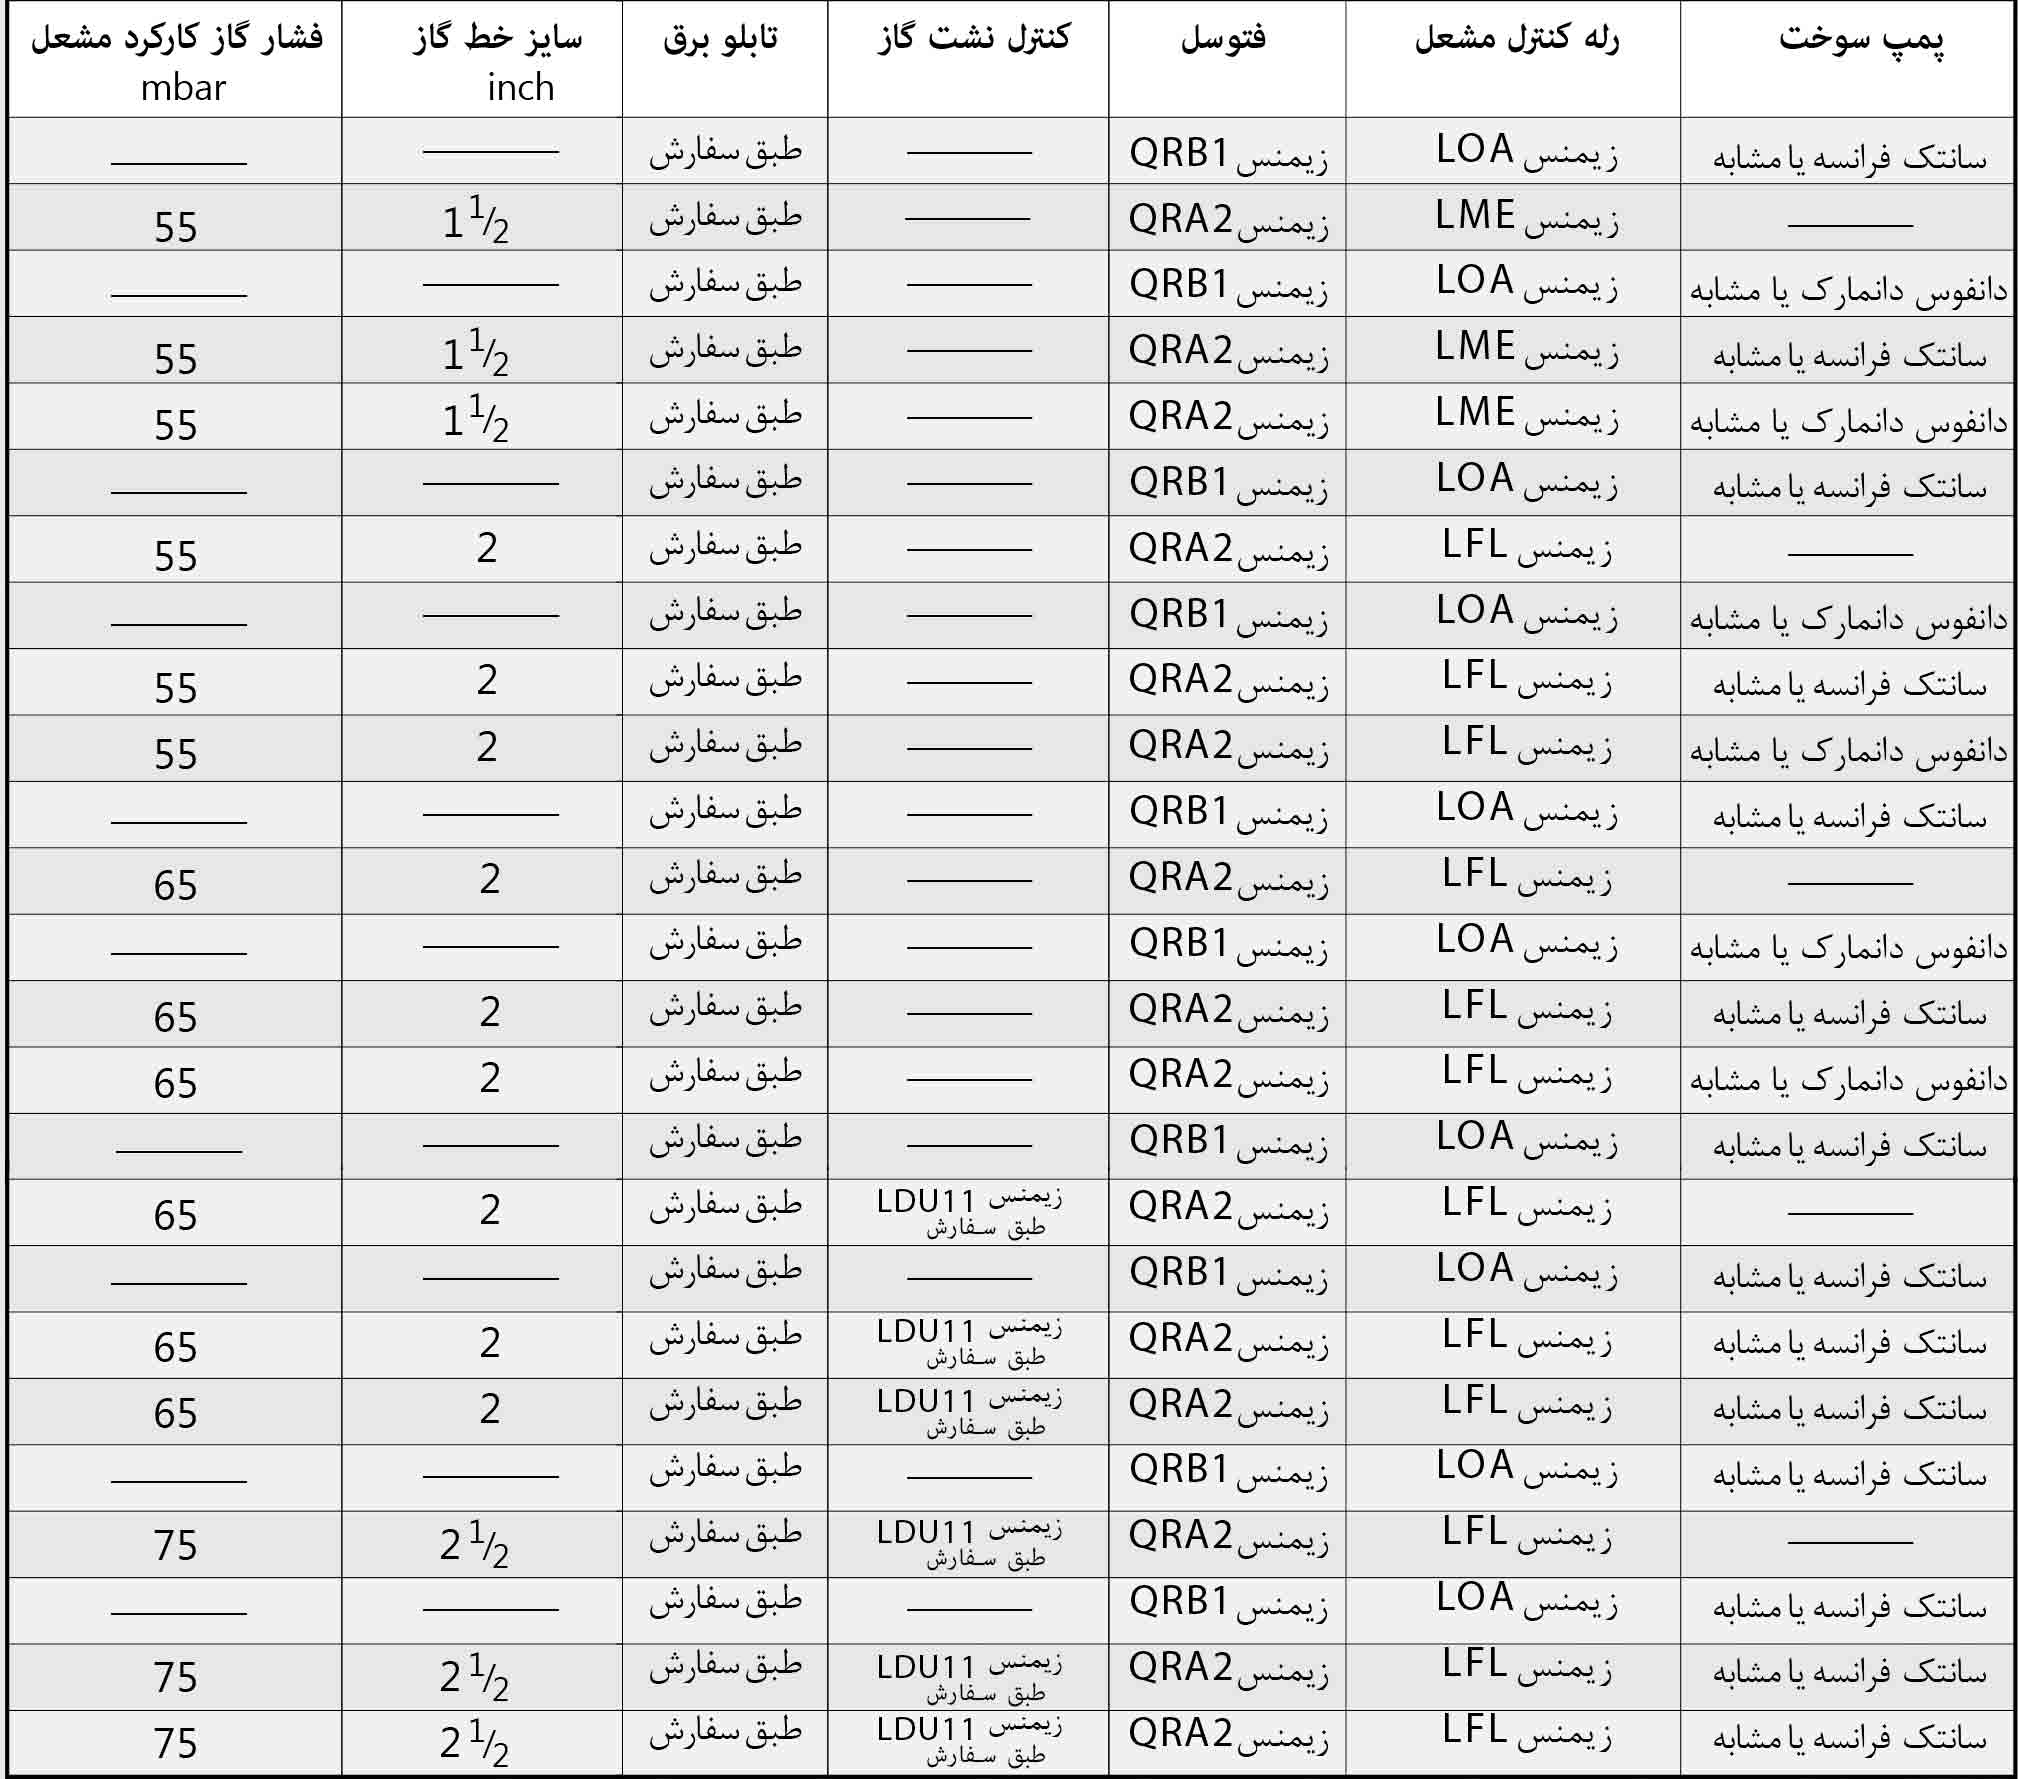 پمپ سوخت رله کنترل مشعل فتوسل کنترل نشت گاز تابلو برق سایز خط گاز فشار گاز کارکرد مشعل
inch mbar
سانتک فرانسه یا مشابه زیمنس LOA زیمنس QRB1 طبق سفارش
زیمنس LME زیمنس QRA2 طبق سفارش 1 1/2 55
دانفوس دانمارک یا مشابه زیمنس LOA زیمنس QRB1 طبق سفارش
سانتک فرانسه یا مشابه زیمنس LME زیمنس QRA2 طبق سفارش 1 1/2 55
دانفوس دانمارک یا مشابه زیمنس LME زیمنس QRA2 طبق سفارش 1 1/2 55
سانتک فرانسه یا مشابه زیمنس LOA زیمنس QRB1 طبق سفارش
زیمنس LFL زیمنس QRA2 طبق سفارش 2 55
دانفوس دانمارک یا مشابه زیمنس LOA زیمنس QRB1 طبق سفارش
سانتک فرانسه یا مشابه زیمنس LFL زیمنس QRA2 طبق سفارش 2 55
دانفوس دانمارک یا مشابه زیمنس LFL زیمنس QRA2 طبق سفارش 2 55
سانتک فرانسه یا مشابه زیمنس LOA زیمنس QRB1 طبق سفارش
زیمنس LFL زیمنس QRA2 طبق سفارش 2 65
دانفوس دانمارک یا مشابه زیمنس LOA زیمنس QRB1 طبق سفارش
سانتک فرانسه یا مشابه زیمنس LFL زیمنس QRA2 طبق سفارش 2 65
دانفوس دانمارک یا مشابه زیمنس LFL زیمنس QRA2 طبق سفارش 2 65
سانتک فرانسه یا مشابه زیمنس LOA زیمنس QRB1 طبق سفارش
زیمنس LFL زیمنس QRA2 زیمنس LDU11 طبق سفارش طبق سفارش 2 65
سانتک فرانسه یا مشابه زیمنس LOA زیمنس QRB1 طبق سفارش
سانتک فرانسه یا مشابه زیمنس LFL زیمنس QRA2 زیمنس LDU11 طبق سفارش طبق سفارش 2 65
سانتک فرانسه یا مشابه زیمنس LFL زیمنس QRA2 زیمنس LDU11 طبق سفارش طبق سفارش 2 65
سانتک فرانسه یا مشابه زیمنس LOA زیمنس QRB1 طبق سفارش
زیمنس LFL زیمنس QRA2 زیمنس LDU11 طبق سفارش طبق سفارش 2 1/2 75
سانتک فرانسه یا مشابه زیمنس LOA زیمنس QRB1 طبق سفارش
سانتک فرانسه یا مشابه زیمنس LFL زیمنس QRA2 زیمنس LDU11 طبق سفارش طبق سفارش 2 1/2 75
سانتک فرانسه یا مشابه زیمنس LFL زیمنس QRA2 زیمنس LDU11 طبق سفارش طبق سفارش 2 1/2 75